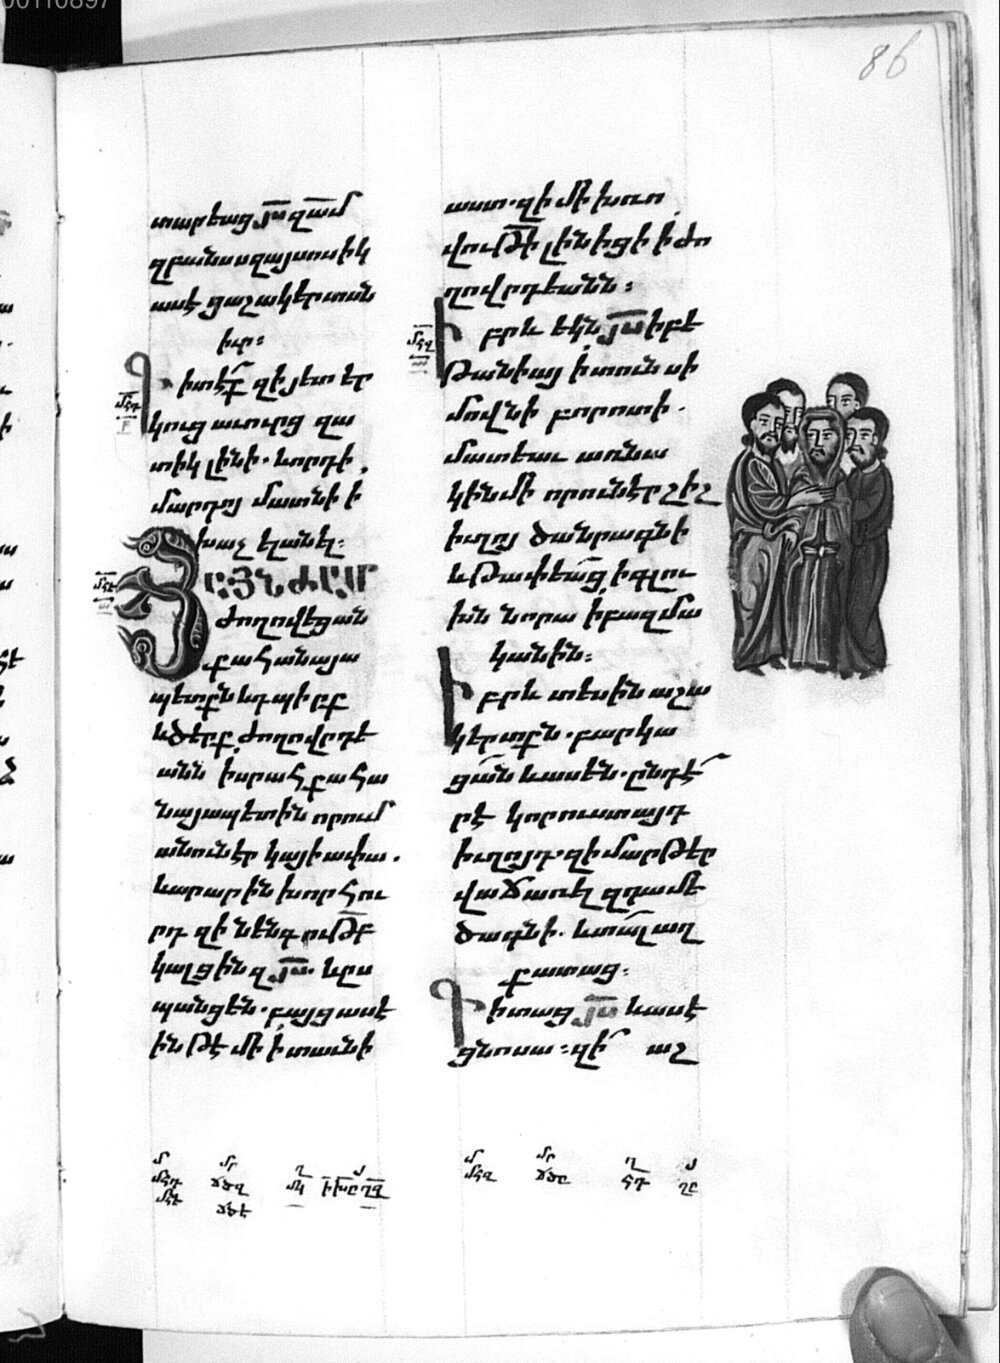 00110897
86
տարեաց յս զամ
զբանսս զայսոսիկ
ասէ ցաշակերտսն
իւր։
Գիտէք զի յետ եր
կուց աւուրց զա
տիկ լինի. և որդի
մարդոյ մատնի ի
խաչ ելանել։
ՅԱՅՆԺԱՄ
ժողովեցան
քահանայա
պետքն և դպիրք
և ծերք ժողովրդե
անն ի սրահ քահա
նայապետին որում
անուն էր կայիափա.
և արարին խորհու
րդ զի նենգութբ
կալցին զյս. և ըս
պանցեն. բայց ասէ
ին թէ մի ի տաւնի
աստ. զի մի խռո
վութի լինիցի ի ժո
ղովրդեանն։
Իբրև եկն յս ի բե
թանիայ ի տուն սի
մովնի բորոտի.
մատեաւ առ նա
կին մի որ ունէր շիշ
իւղոյ ծանրագնի
և թափեաց ի գլու
խն նորա ի բազմա
կանին։
Իբրև տեսին աշա
կերտքն. բարկա
ցան և ասեն. ընդէ
ր է կորուստ այդ
իւղոյդ. զի մարթ էր
վաճառել զդա մե
ծագնի. և տալ աղ
քատաց։
Գիտաց յս և ասէ
ցնոսա։ զի աշ